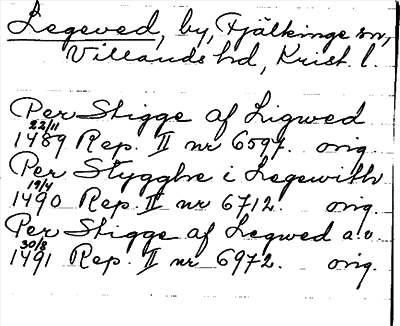 Legeved, by, Fjälkinge sn,
Villands hd, Krist. l.
Per Stigge af Ligwed
22/11
1489 Rep. II nr 6597. orig.
Per Stygghe i Legewith
19/4
1490 Rep. II nr 6712. orig.
Per Stigge af Legwed a.v.
30/8
1491 Rep. II nr 6972. orig.